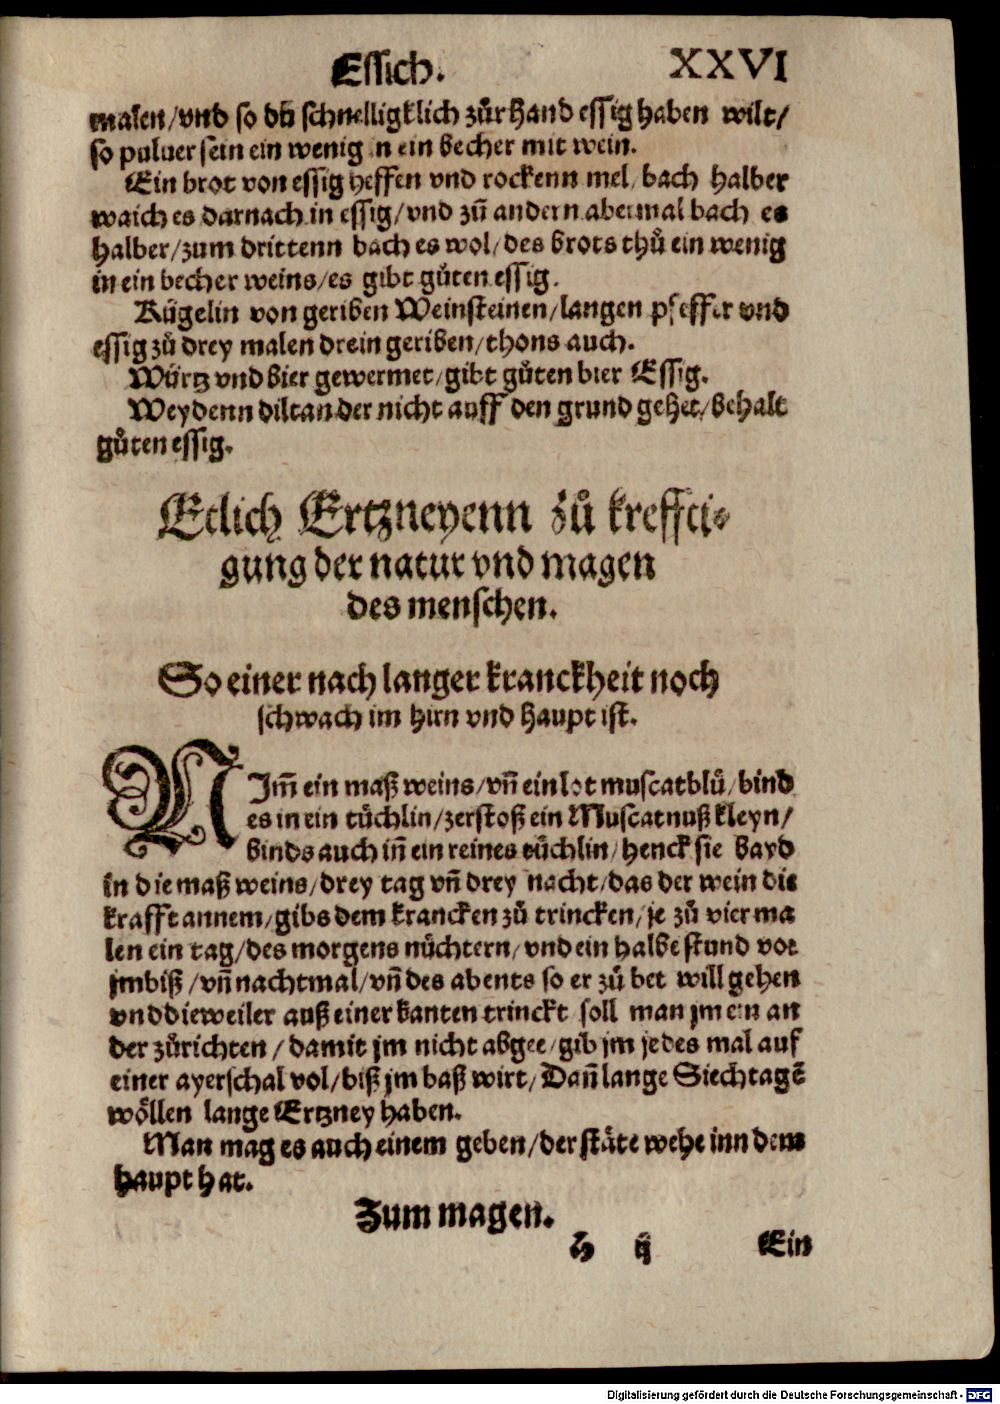 Essich. XXVI
malen/vnd so dů schnelligklich zůr hand essig haben wilt/
so puluer sein ein wenig in ein becher mit wein.
Ein brot von essig heffen vnd rockenn mel/ bach halber
waich es darnach in essig/vnd zů andern abermal bach es
halber/zum drittenn bach es wol/des brots thů ein wenig
in ein becher weins/es gibt gůten essig.
Kügelin von geriben Weinsteinen/langen pfeffer vnd
essig zů drey malen drein geriben/thons auch.
Würtz vnd bier gewermet/gibt gůten bier Essig.
Weydenn diltan der nicht auff den grund gehet/behalt
gůten essig.
Etlich Ertzneyenn zů kreffti⸗
gung der natur vnd magen
des menschen.
So einer nach langer kranckheit noch
schwach im hirn vnd haupt ist.
NIm̄ ein maß weins/vn̄ ein lot muscatblů/bind
es in ein tüchlin/zerstoß ein Muscatnuß kleyn/
binds auch in̄ ein reines tüchlin/henck sie bayd
in die maß weins/drey tag vn̄ drey nacht/das der wein die
krafft annem/gibs dem krancken zů trincken/je zů vier ma
len ein tag/des morgens nüchtern/vnd ein halbe stund vor
jmbiß/vn̄ nachtmal/vn̄ des abents so er zů bet will gehen
vnd dieweiler auß einer kanten trinckt soll man jm ein an
der zůrichten/damit jm nicht abgee/gib jm jedes mal auf
einer ayerschal vol/biß jm baß wirt/Dan̄ lange Siechtagē
wöllen lange Ertzney haben.
Man mag es auch einem geben/der stäte wehe inn dem
haupt hat.
Zum magen.
h ij Ein
Digitalisierung gefördert durch die Deutsche Forschungsgemeinschaft - DFG